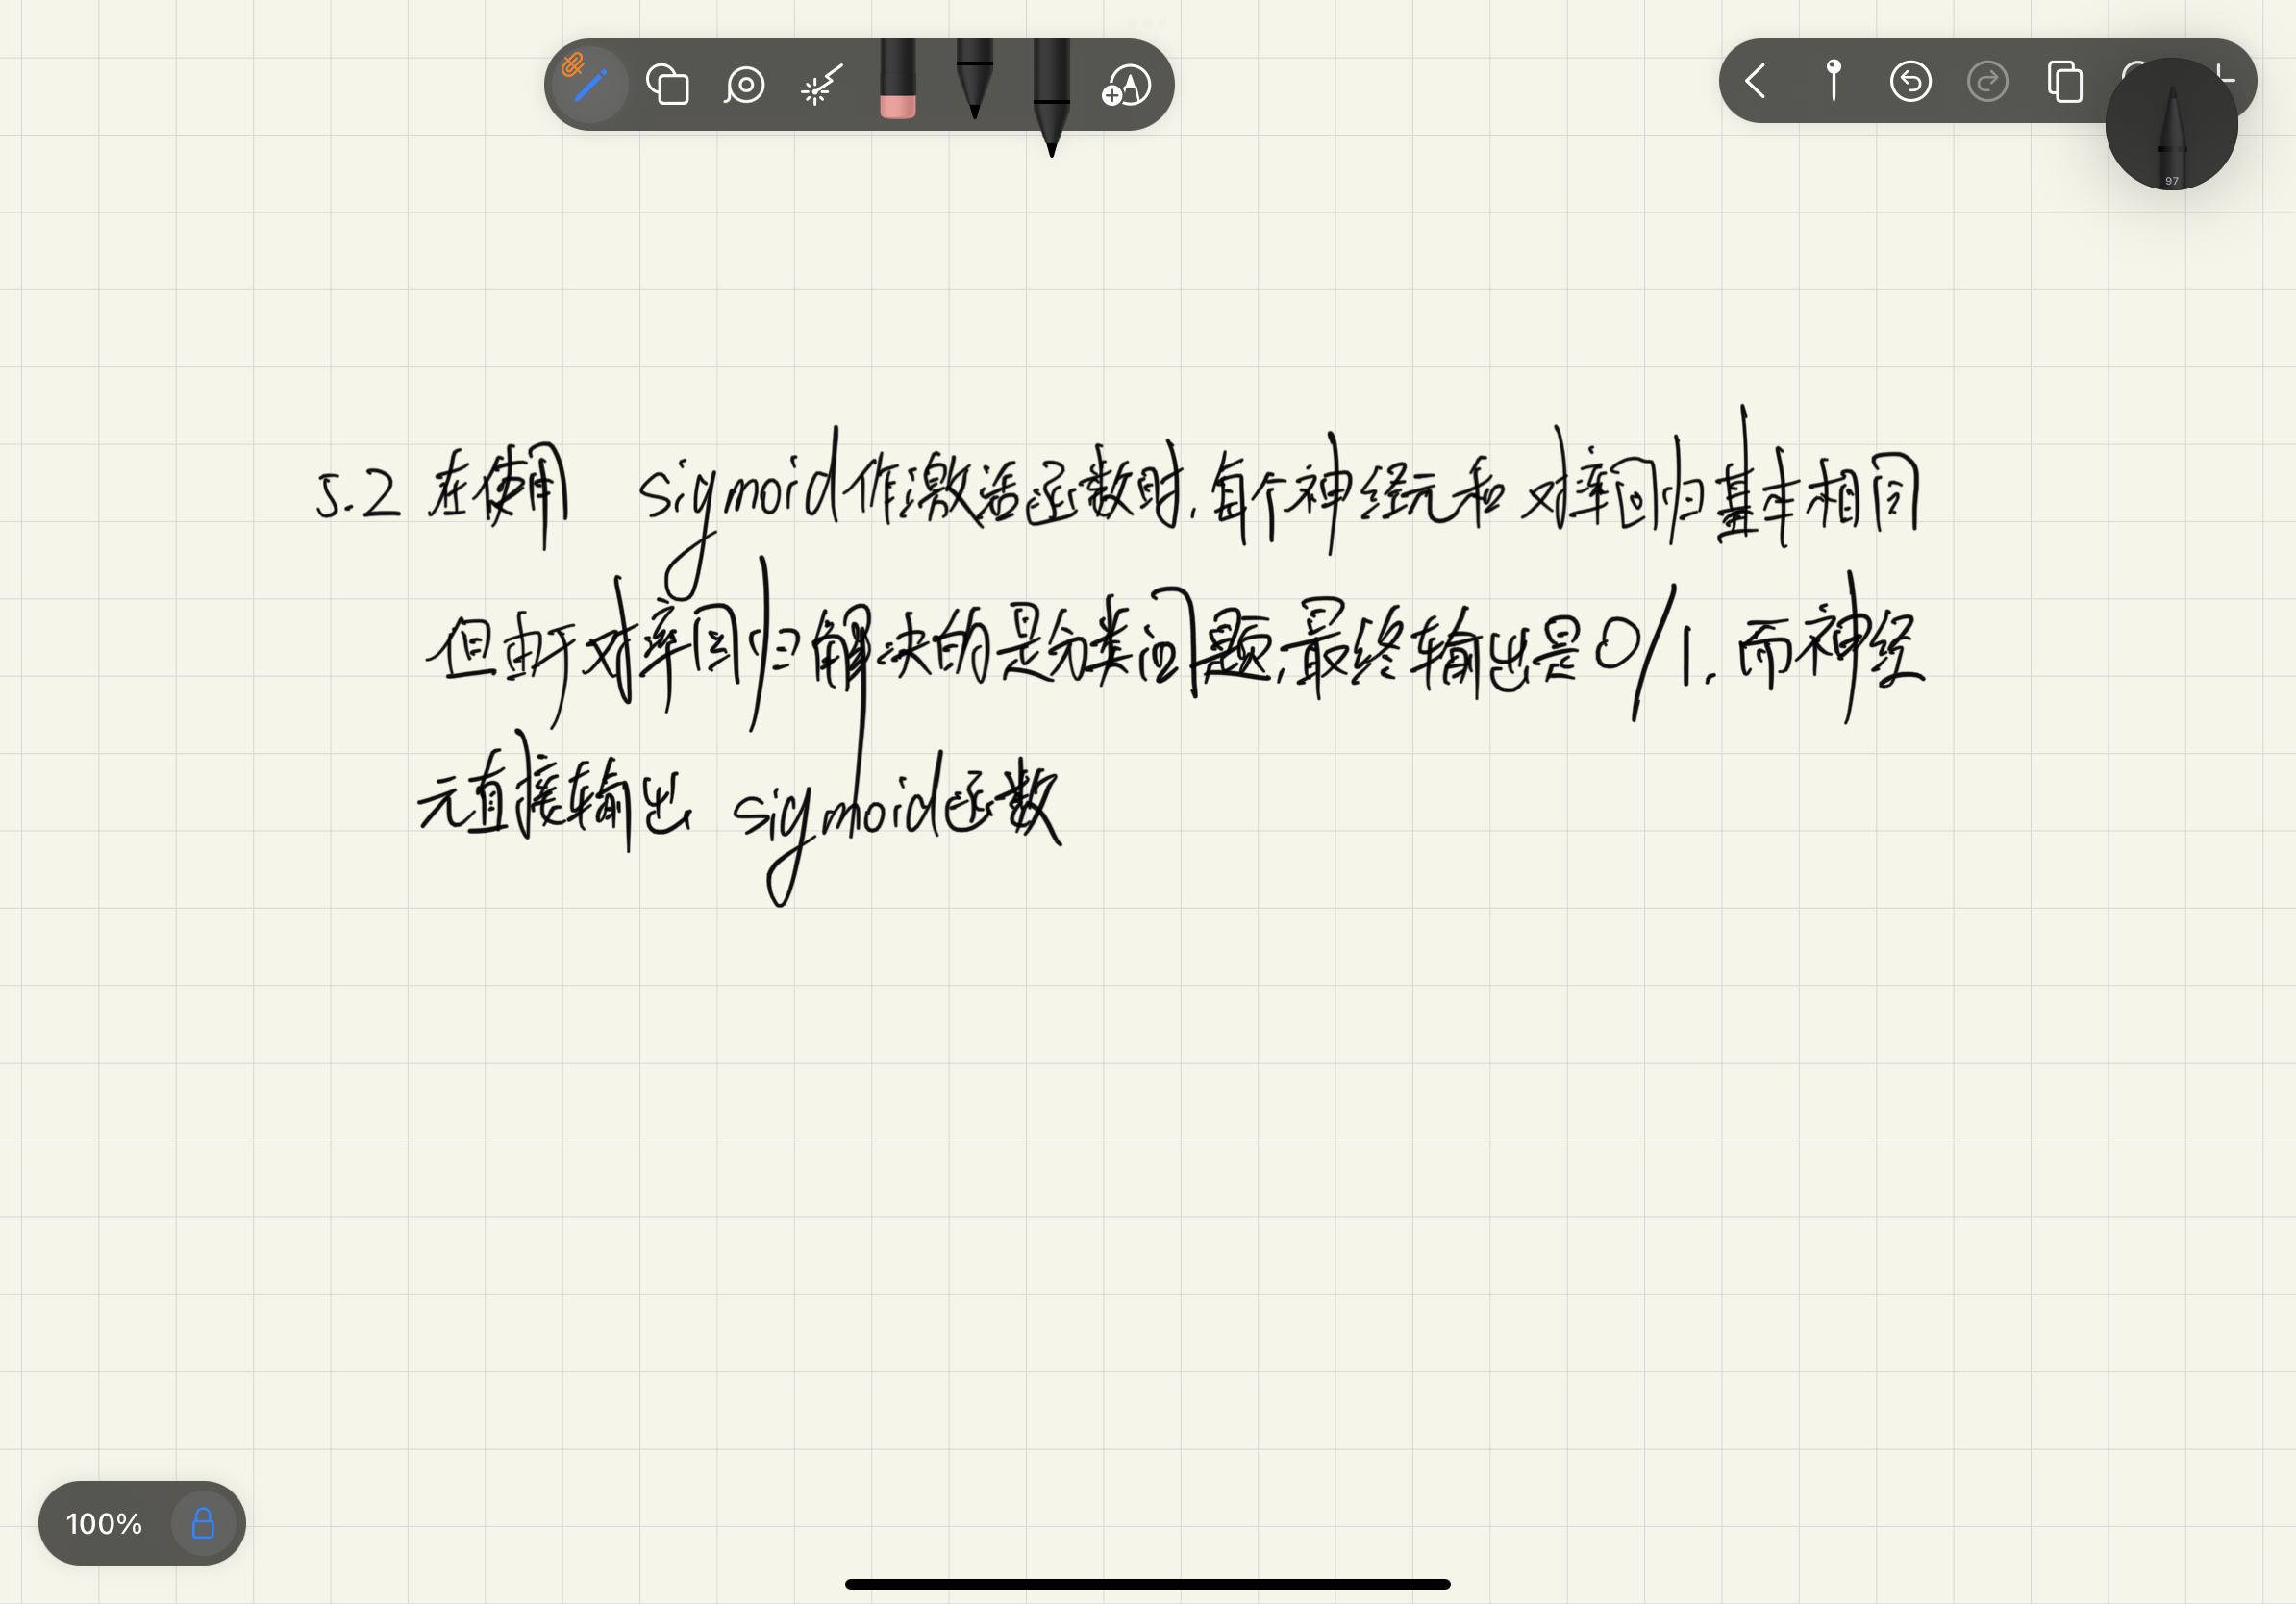 97
5.2 在使用 sigmoid作激活函数时,每个神经元和对率回归基本相同
但由于对率回归解决的是分类问题,最终输出是0/1.而神经
元直接输出 sigmoid函数
100%